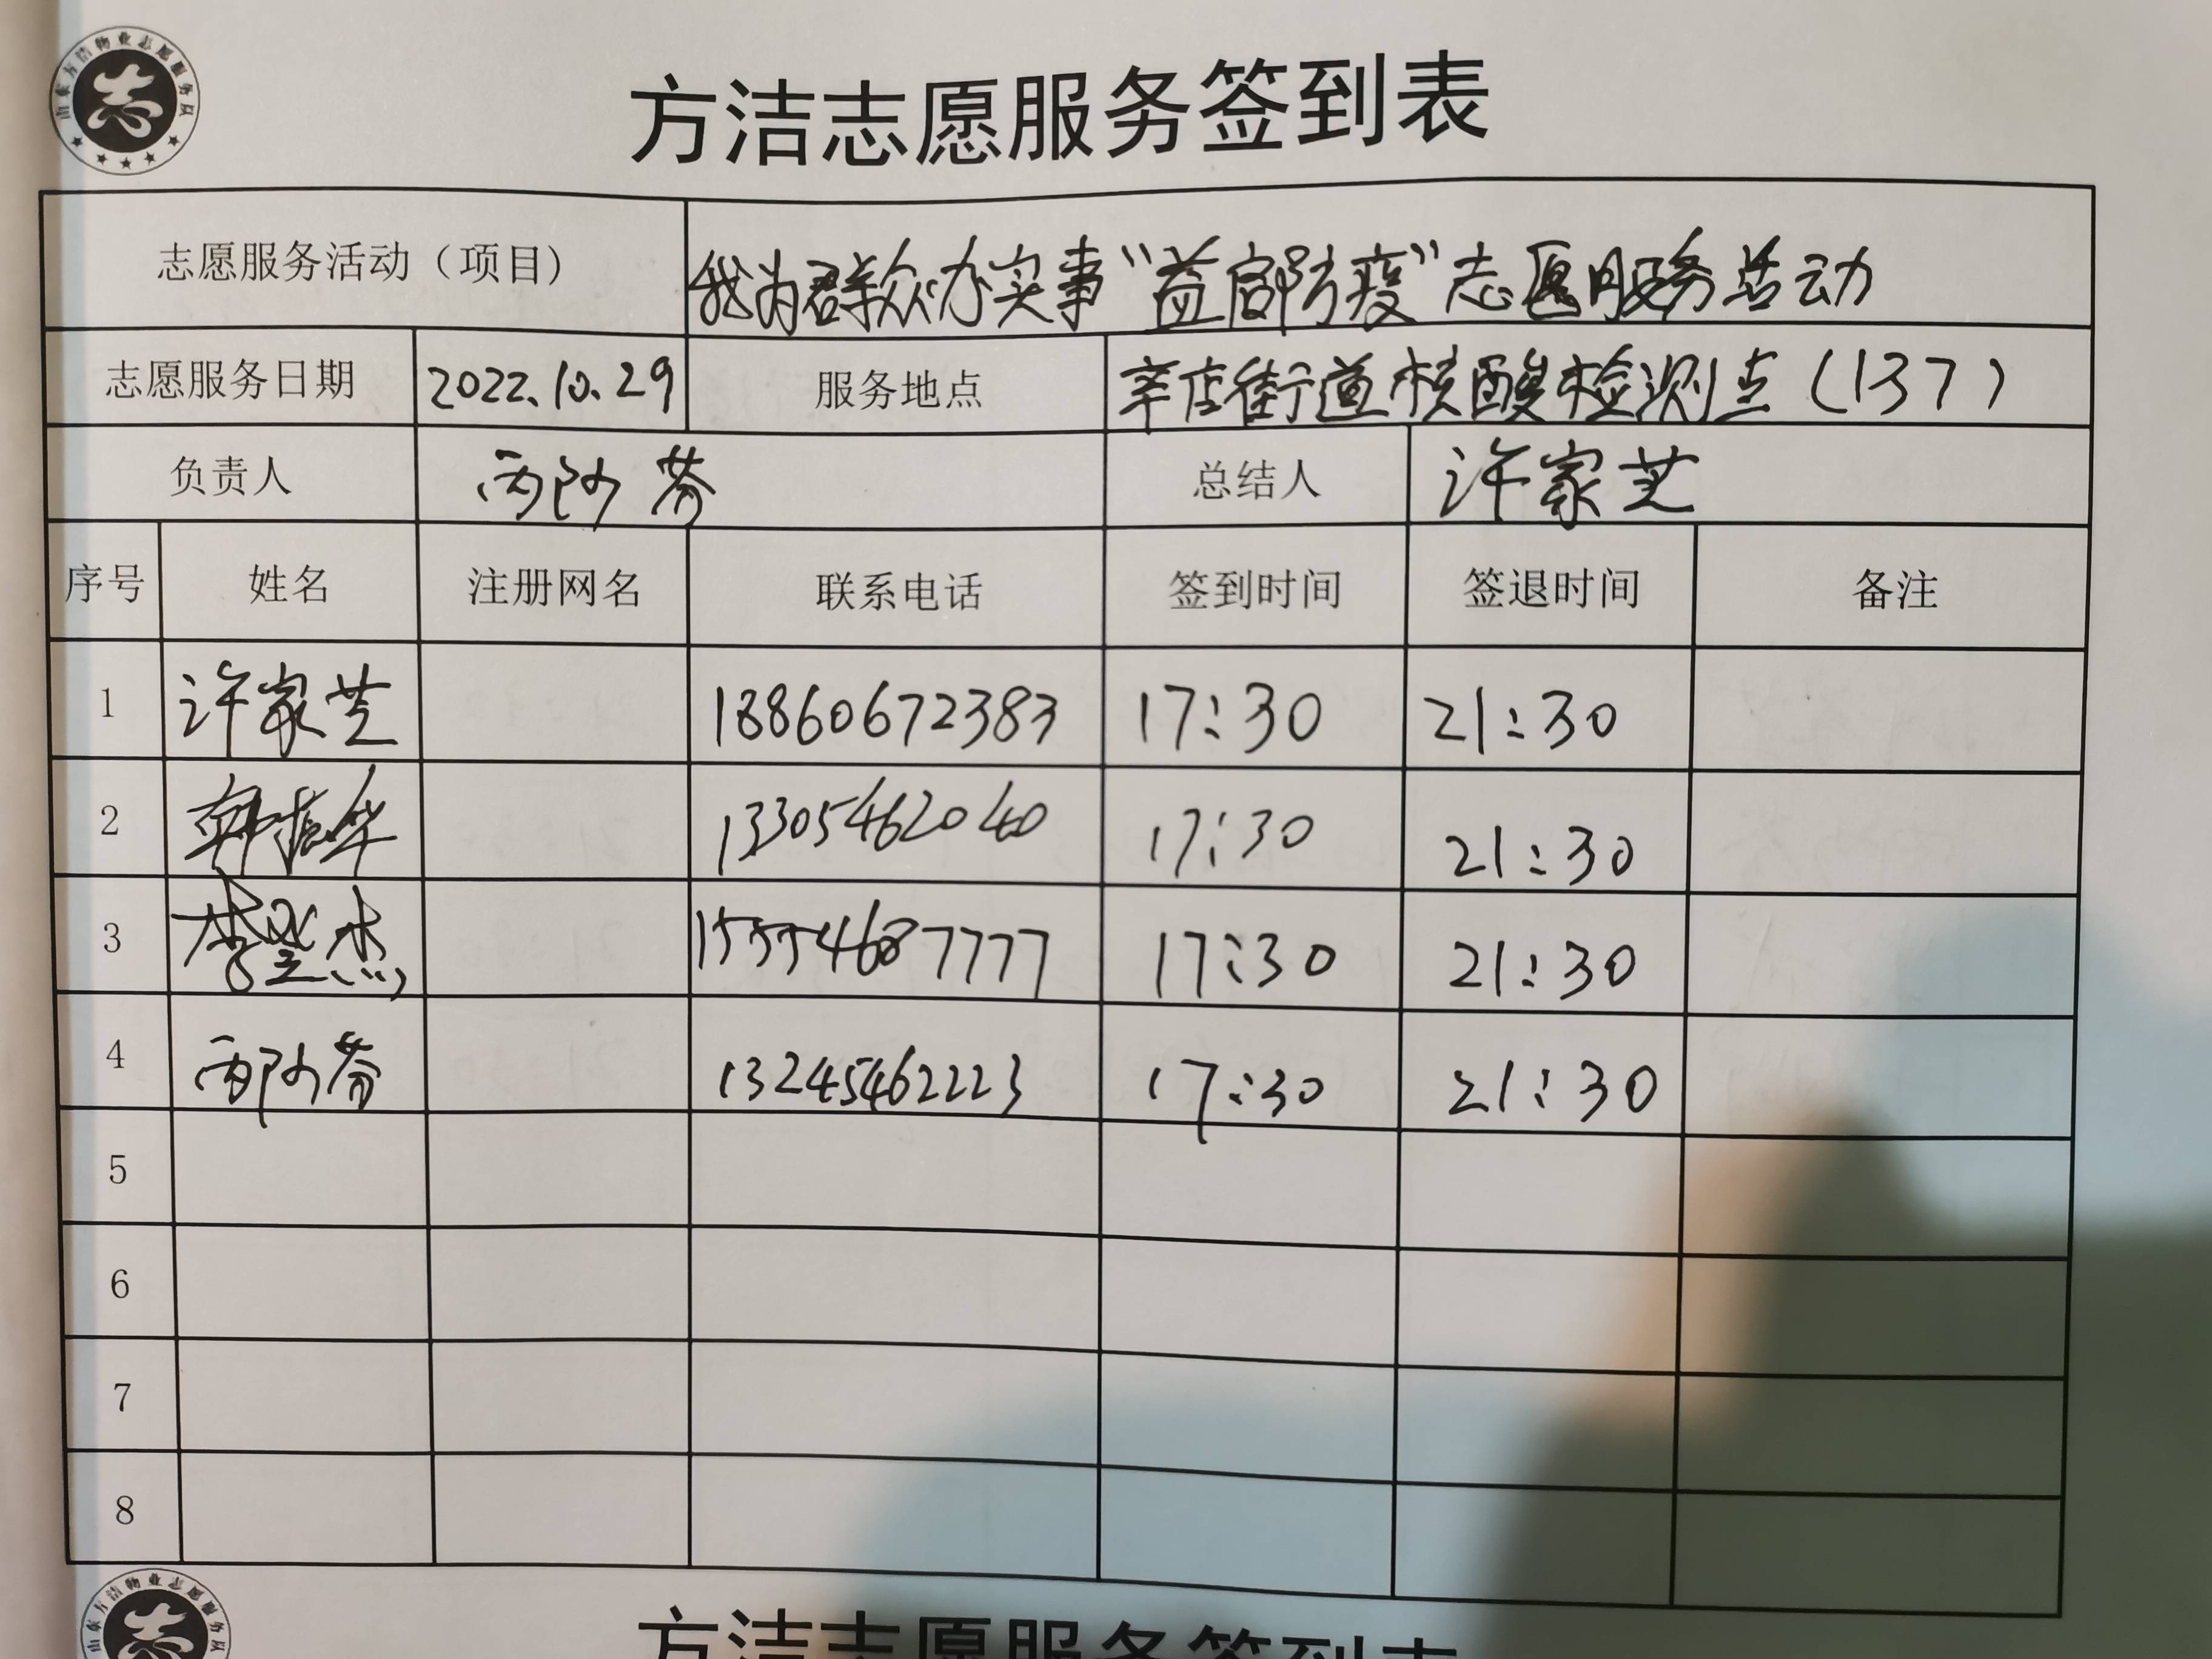 山东方洁物业志愿服务队
志
方洁志愿服务签到表
志愿服务活动（项目） 我为群众办实事“益启防疫”志愿服务活动
志愿服务日期 2022.10.29 服务地点 辛店街道核酸检测点（137）
负责人 总结人 许家芝
序号 姓名 注册网名 联系电话 签到时间 签退时间 备注
1 许家芝 18860672383 17:30 21:30
2 郭振华 13305462040 17:30 21:30
3 李圣杰 15554687777 17:30 21:30
4 13245462223 17:30 21:30
5
6
7
8
山东方洁物业志愿服务队
方洁志愿服务签到表